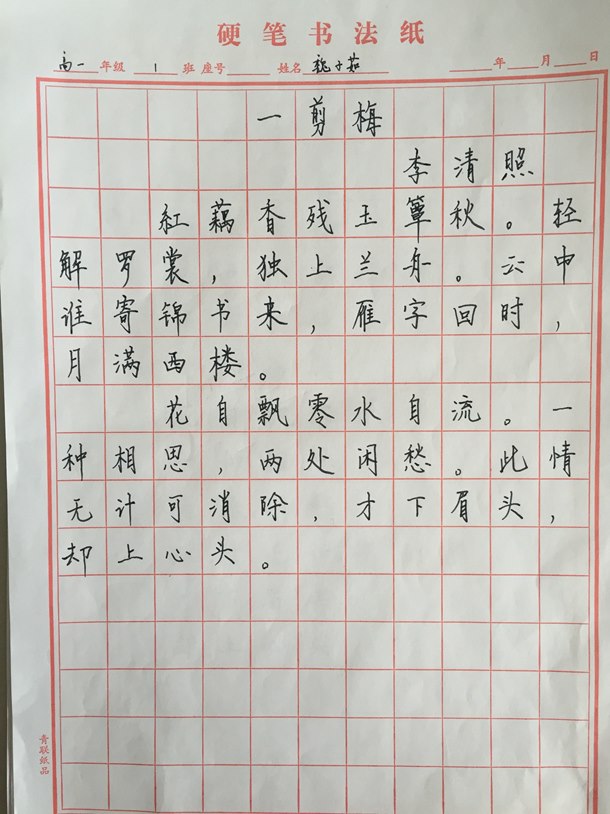 硬笔书法纸
高一年级 1班 座号 姓名 魏子茹 年 月 日
一剪梅
李清照
紅藕香残玉簟秋。轻
解罗裳，独上兰舟。云中
谁寄锦书来，雁字回时，
月满西楼。
花自飘零水自流。一
种相思，两处闲愁。此情
无计可消除，才下眉头，
却上心头。
青联纸品